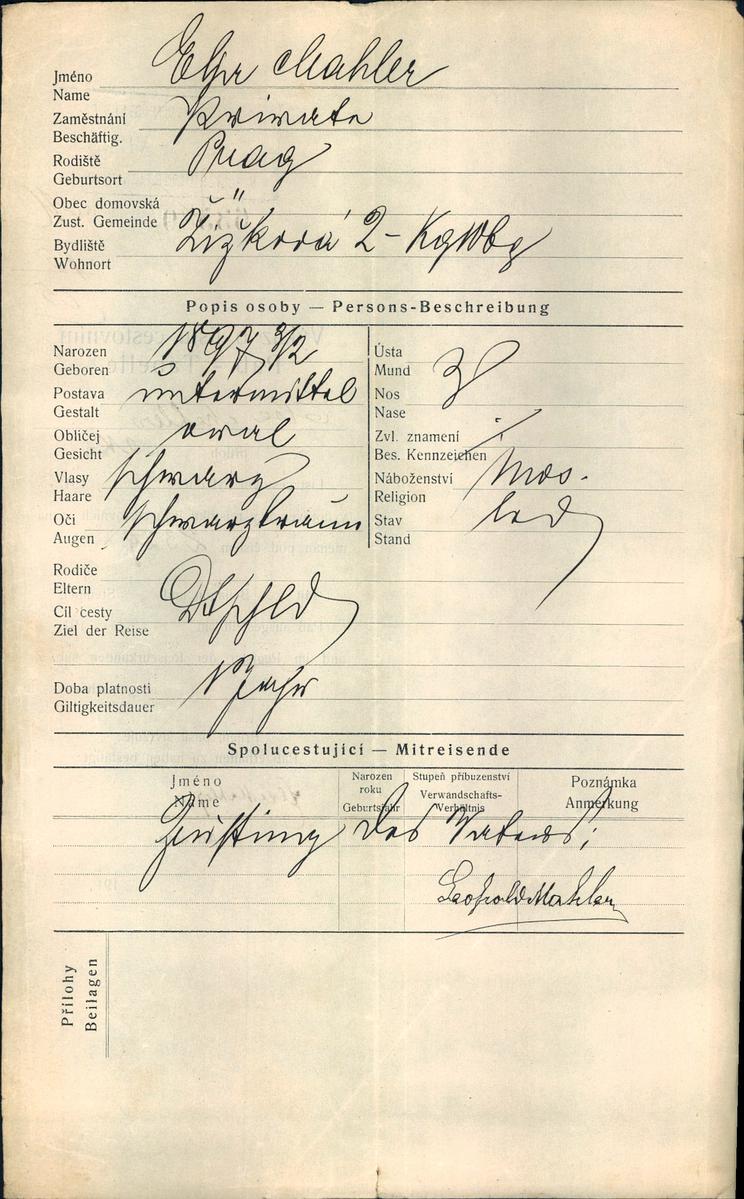 Jméno
Name Elsa Mahler
Zaměstnání
Beschäftig. Private
Rodiště
Geburtsort Prag
Obec domovská
Zust. Gemeinde "
Bydliště
Wohnort Žižkova 2 - KglWbg
Popis osoby — Persons-Beschreibung
Narozen
Geboren 1897 3/2
Postava
Gestalt untermittel
Obličej
Gesicht oval
Vlasy
Haare schwarz
Oči
Augen schwarzbraun
Ústa
Mund
Nos
Nase
Zvl. znamení
Bes. Kennzeichen /
Náboženství
Religion mos.
Stav
Stand led
Rodiče
Eltern
Cíl cesty
Ziel der Reise Dtschld
Doba platnosti
Giltigkeitsdauer 1 Jahr
Spolucestující — Mitreisende
Jméno
Name
Narozen
roku
Geburtsjahr
Stupeň příbuzenství
Verwandschafts-
Verhältnis
Poznámka
Anmerkung
Zustimg des Vaters:
Leopold Mahler
Přílohy
Beilagen